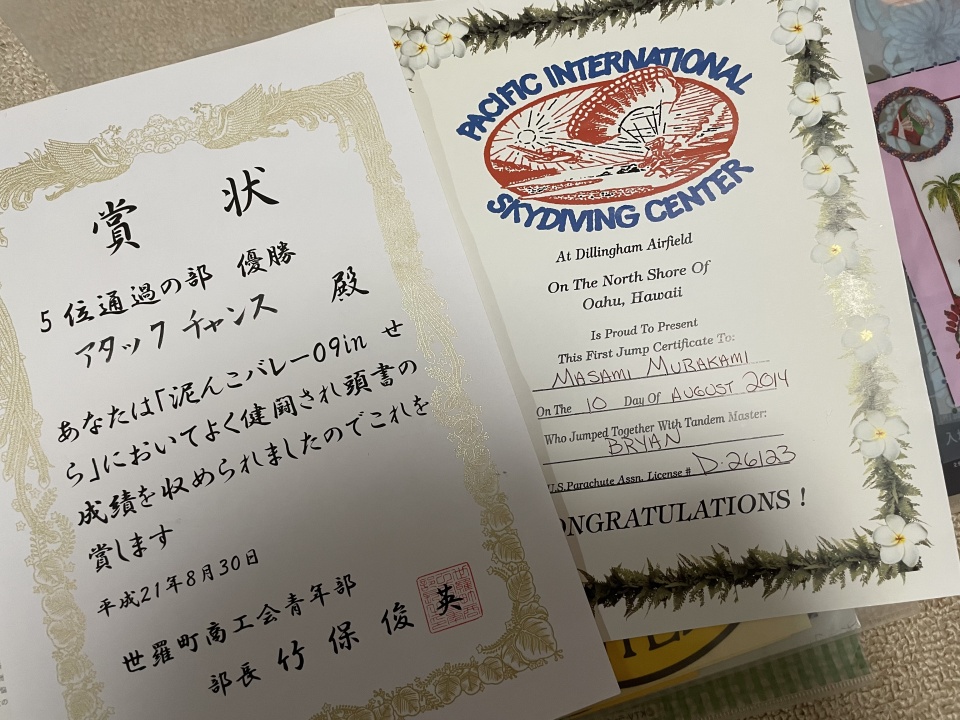 賞 状
5位通過の部 優勝
アタックチャンス 殿
あなたは「泥んこバレー09in せ
ら」においてよく健闘され頭書の
成績を収められましたのでこれを
賞します
平成21年8月30日
世羅町商工会青年部
部長 竹保俊英
PACIFIC INTERNATIONAL
SKYDIVING CENTER
At Dillingham Airfield
On The North Shore Of
Oahu, Hawaii
Is Proud To Present
This First Jump Certificate To:
MASAMI MURAKAMI
On The 10 Day Of AUGUST 2014
Who Jumped Together With Tandem Master:
BRYAN
U.S. Parachute Assn. License # D-26123
ONGRATULATIONS !